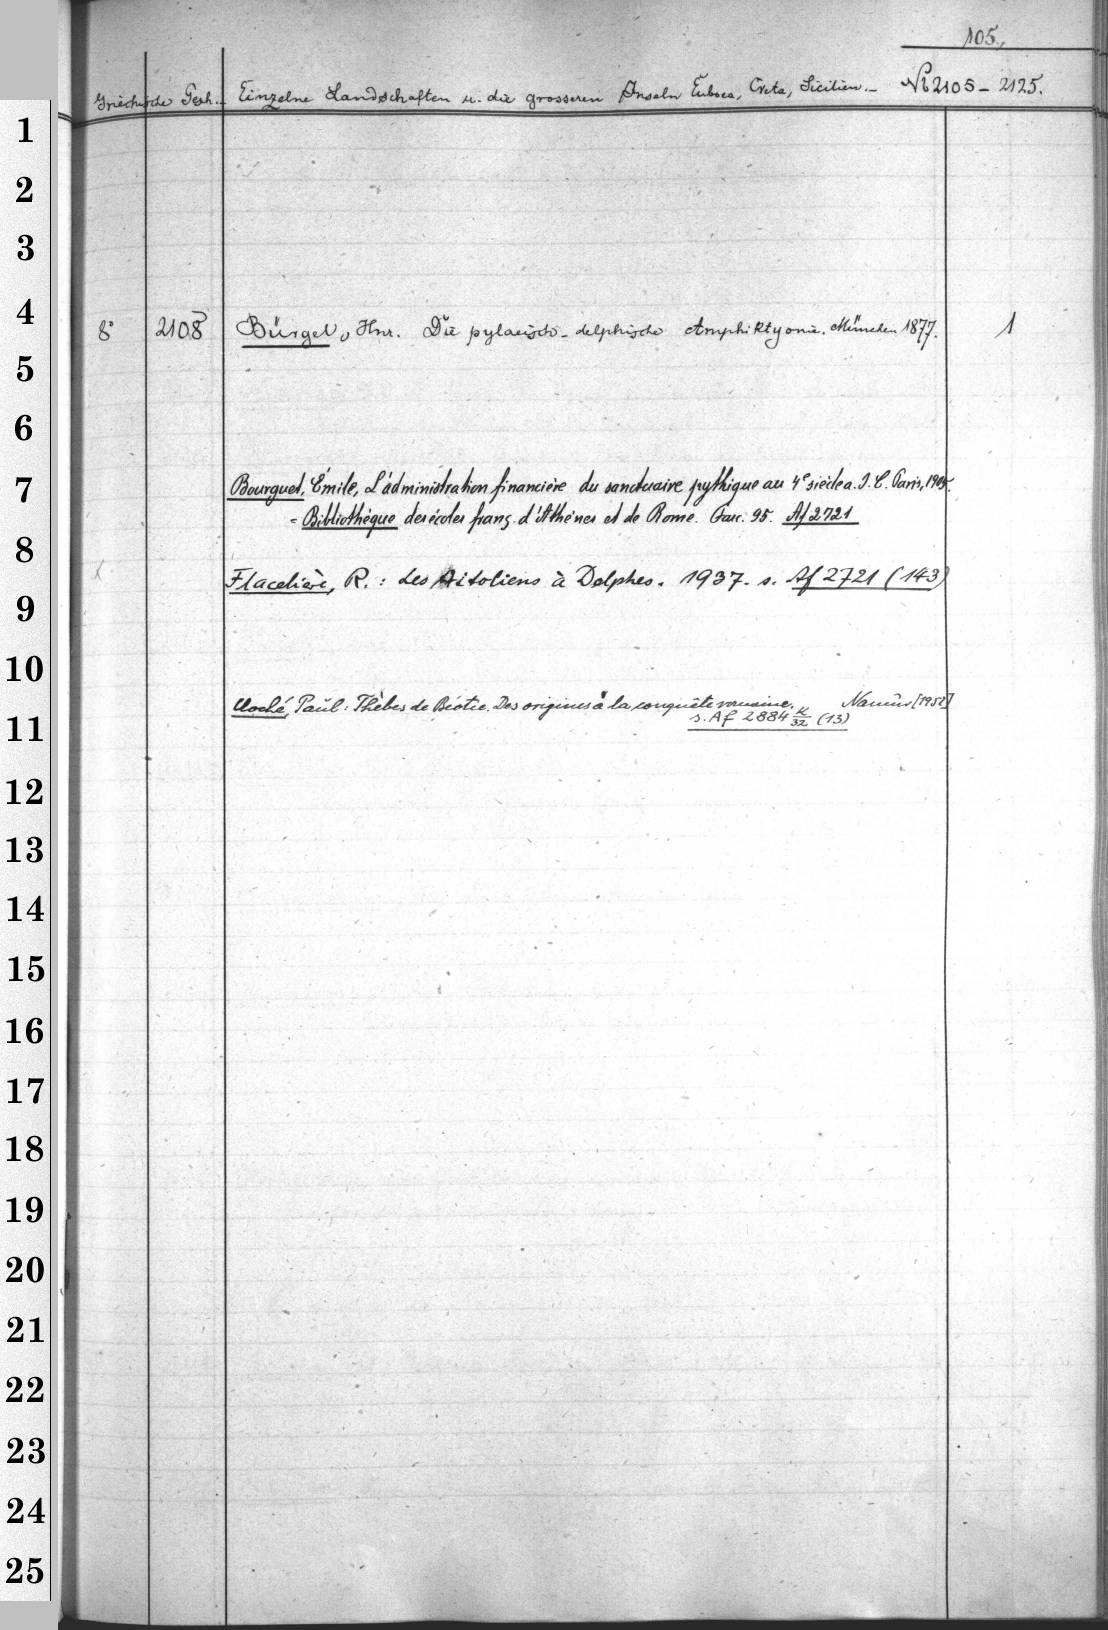 105.
Griechische Gesch. Einzelne Landschaften u. die grosseren Inseln Euboea, Creta, Sicilien. Nr 2105 - 2125.
1
2
3
4
8° 2108 Bürgel, Hnr. Die pylaeisch-delphische Amphiktyonie. München 1877. 1
5
6
7
Bourguet, Émile, L'administration financière du sanctuaire pythique au 4e siècle a. J. C. Paris, 1905.
= Bibliothèque des écoles franç. d'Athènes et de Rome. Fasc. 95. Af 2721
8
Flacelière, R.: Les Aitoliens à Delphes. 1937. s. Af 2721 (143)
9
10
Cloché, Paul: Thèbes de Béotie. Des origines à la conquête romaine. Namur [1952]
s. Af 2884 K/32 (13)
11
12
13
14
15
16
17
18
19
20
21
22
23
24
25